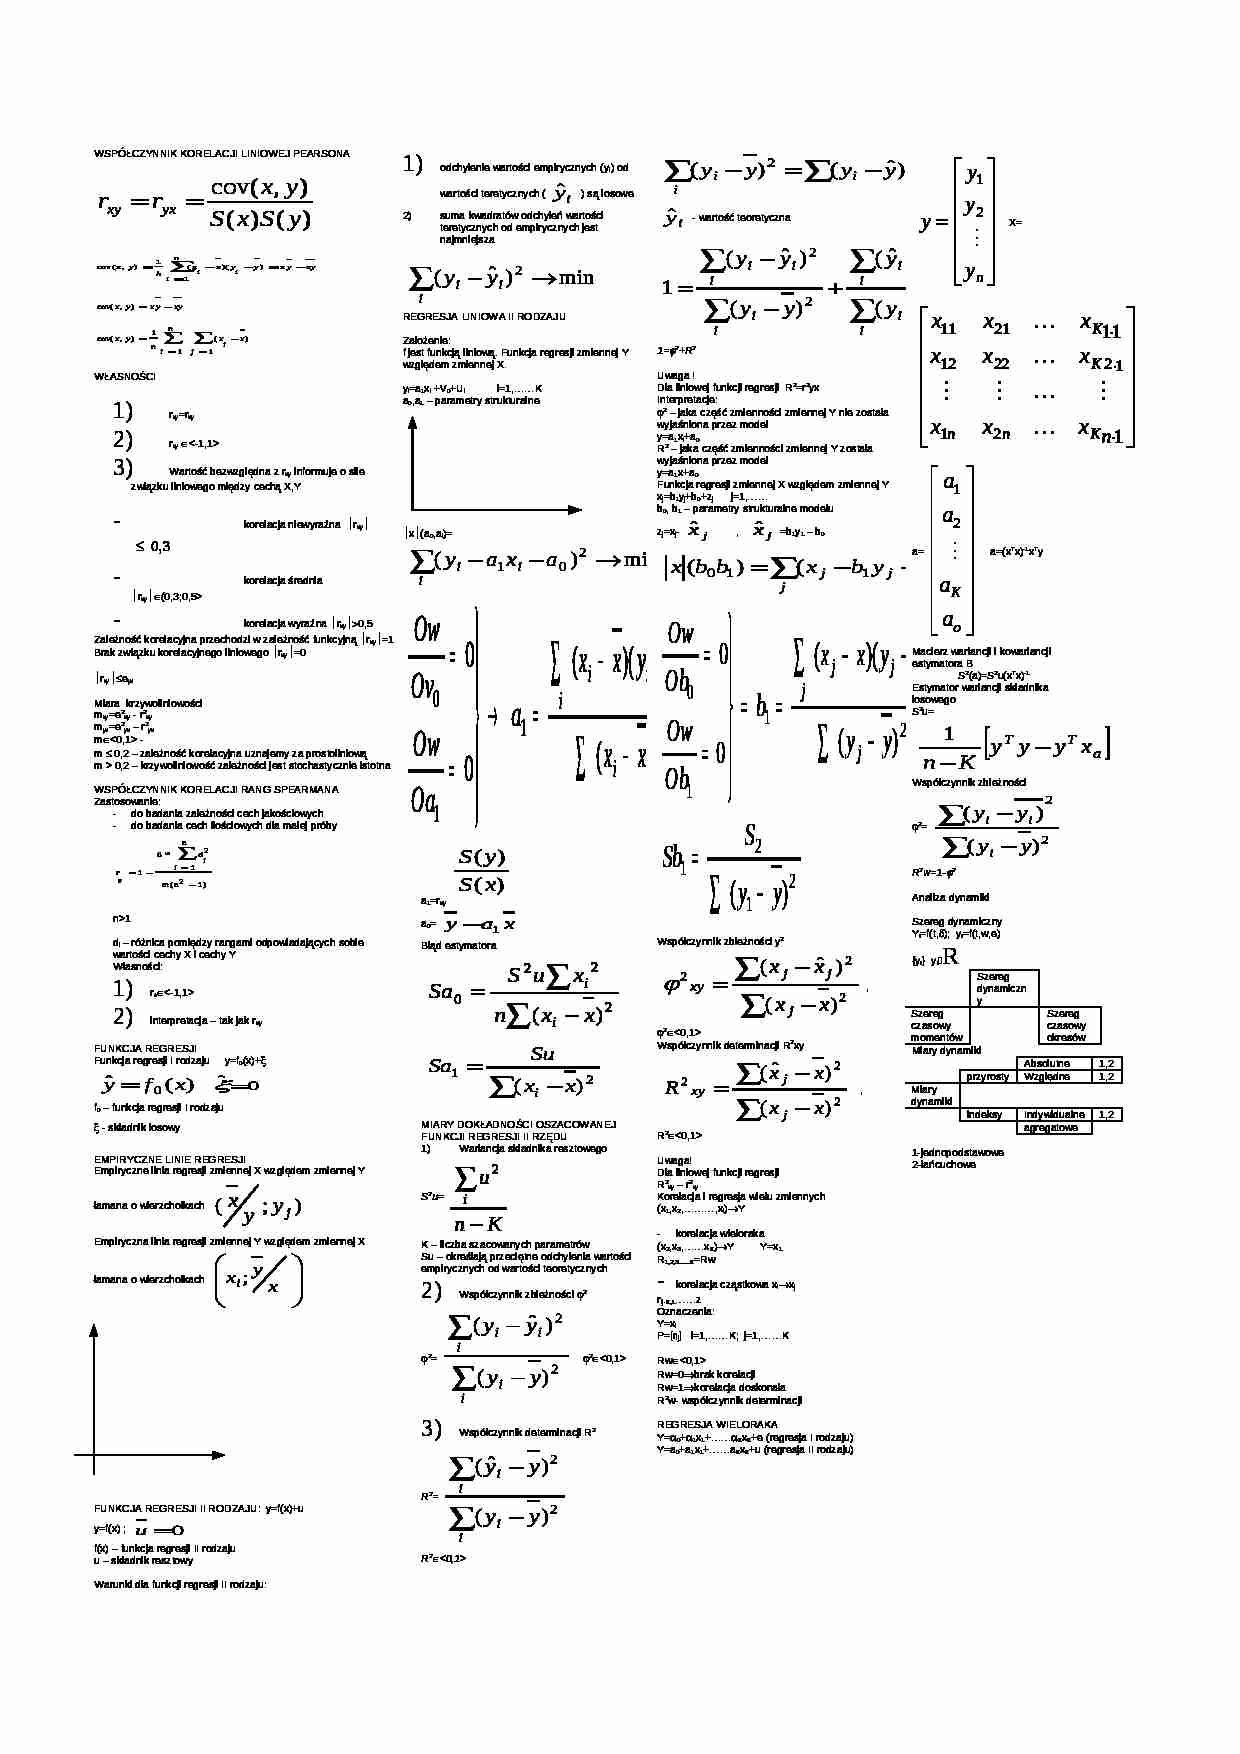 WSPÓŁCZYNNIK KORELACJI LINIOWEJ PEARSONA
r_xy = r_yx = cov(x, y) / S(x)S(y)
WŁASNOŚCI
1) r_xy=r_xy
2) r_xy∈<-1,1>
3) Wartość bezwzględna z r_xy informuje o sile
związku liniowego między cechą X,Y
– korelacja niewyraźna |r_xy|
≤ 0,3
– korelacja średnia
|r_xy|∈(0,3;0,5>
– korelacja wyraźna |r_xy|>0,5
Zależność korelacyjna przechodzi w zależność funkcyjną |r_xy|=1
Brak związku korelacyjnego liniowego |r_xy|=0
|r_xy|≤e_xy
Miara krzywoliniowości
m_xy=e²_xy - r²_xy
m_yx=e²_yx – r²_yx
m∈<0,1> -
m ≤ 0,2 – zależność korelacyjna uznajemy za prostoliniową
m > 0,2 – krzywoliniowość zależności jest stochastycznie istotna
WSPÓŁCZYNNIK KORELACJI RANG SPEARMANA
Zastosowanie:
- do badania zależności cech jakościowych
- do badania cech ilościowych dla małej próby
n>1
d_i – różnica pomiędzy rangami odpowiadających sobie
wartości cechy X i cechy Y
Własności:
1) r_s∈<-1,1>
2) Interpretacja – tak jak r_xy
FUNKCJA REGRESJI
Funkcja regresji I rodzaju y=f₀(x)+ξ
ŷ = f₀(x) ξ=0
f₀ – funkcja regresji I rodzaju
ξ - składnik losowy
EMPIRYCZNE LINIE REGRESJI
Empiryczne linia regresji zmiennej X względem zmiennej Y
łamana o wierzchołkach (x̄/y ; y_j)
Empiryczna linia regresji zmiennej Y względem zmiennej X
łamana o wierzchołkach (x_i ; ȳ/x)
FUNKCJA REGRESJI II RODZAJU: y=f(x)+u
y=f(x) ; ū = 0
f(x) – funkcja regresji II rodzaju
u – składnik resztowy
Warunki dla funkcji regresji II rodzaju:
1) odchylenie wartości empirycznych (y_i) od
wartości teretycznych ( ŷ_i ) są losowe
2) suma kwadratów odchyleń wartości
teretycznych od empirycznych jest
najmniejsza
∑_i (y_i − ŷ_i)² → min
REGRESJA LINIOWA II RODZAJU
Założenie:
f jest funkcją liniową. Funkcja regresji zmiennej Y
względem zmiennej X.
y_i=a₁x_i +V₀+U_i i=1,……K
a₀,a₁ – parametry strukturalne
|x|(a₀,a_i)=
∑_i (y_i − a₁x_i − a₀)² → mi
Ow/Ov₀ = 0
Ow/Oa₁ = 0
→ a₁ = ∑_i (x_i - x̄)(y / ∑ (x_i - x
S(y) / S(x)
a₁=r_xy
a₀= ȳ − a₁ x̄
Błąd estymatora
Sa₀ = S²u∑x_i² / n∑(x_i − x̄)²
Sa₁ = Su / ∑(x_i − x̄)²
MIARY DOKŁADNOŚCI OSZACOWANEJ
FUNKCJI REGRESJI II RZĘDU
1) Wariancja składnika resztowego
S²u= ∑_i u² / n − K
K – liczba szacowanych parametrów
Su – określają przeciętne odchylenia wartości
empirycznych od wartości teoretycznych
2) Współczynnik zbieżności φ²
φ²= ∑_i (y_i − ŷ_i)² / ∑_i (y_i − ȳ)² φ²∈<0,1>
3) Współczynnik determinacji R²
R²= ∑_i (ŷ_i − ȳ)² / ∑_i (y_i − ȳ)²
R²∈<0,1>
∑_i (y_i − ȳ)² = ∑(y_i − ŷ)
ŷ_i - wartość teoretyczna
1 = ∑_i (y_i − ŷ_i)² / ∑_i (y_i − ȳ)² + ∑_i (ŷ_i / ∑_i (y_i
1=φ²+R²
Uwaga !
Dla liniowej funkcji regresji R²=r²yx
Interpretacje:
φ² – jaka część zmienności zmiennej Y nie została
wyjaśniona przez model
y=a₁x_i+a₀
R² – jaka część zmienności zmiennej Y została
wyjaśniona przez model
y=a₁x+a₀
Funkcja regresji zmiennej X względem zmiennej Y
x_j=b₁y_j+b₀+z_j j=1,……
b₀, b₁ – parametry strukturalne modelu
z_j=x_j- x̂_j , x̂_j =b₁y₁ – b₀
|x|(b₀b₁) = ∑_j (x_j − b₁y_j -
Ow/Ob₀ = 0
Ow/Ob₁ = 0
= b₁ = ∑_j (x_j - x̄)(y_j - / ∑ (y_j - ȳ)²
Sb₁ = S₂ / ∑ (y₁ - ȳ)²
Współczynnik zbieżności y²
φ²_xy = ∑(x_j − x̂_j)² / ∑(x_j − x̄)² ,
φ²∈<0,1>
Współczynnik determinacji R²xy
R²_xy = ∑(x̂_j − x̄)² / ∑(x_j − x̄)² ,
R²∈<0,1>
Uwaga!
Dla liniowej funkcji regresji
R²_xy – r²_xy
Korelacja i regresja wielu zmiennych
(x₁,x₂,………,x_i)→Y
- korelacja wieloraka
(x₂,x₃,……x_K)→Y Y=x₁
– korelacja cząstkowa x_i→x_j
Oznaczenia:
Y=x_i
P=[r_ij] i=1,……K; j=1,……K
Rw∈<0,1>
Rw=0⇒brak korelacji
Rw=1⇒korelacja doskonała
R²w- współczynnik determinacji
REGRESJA WIELORAKA
Y=α₀+α₁x₁+……α_Kx_K+e (regresja I rodzaju)
Y=a₀+a₁x₁+……a_Kx_K+u (regresja II rodzaju)
y = [y₁ y₂ ⋮ y_n] x=
x₁₁ x₂₁ … x_K1·1
x₁₂ x₂₂ … x_K2·1
⋮ ⋮ … ⋮
x₁n x₂n … x_Kn·1
a= [a₁ a₂ ⋮ a_K a₀] a=(xᵀx)⁻¹xᵀy
Macierz wariancji i kowariancji
estymatora B
S²(a)=S²u(xᵀx)⁻¹
Estymator wariancji składnika
losowego
S²u=
1 / n−K [yᵀy − yᵀx_a]
Współczynnik zbieżności
φ²= ∑(y_i − ȳ_i)² / ∑(y_i − ȳ)²
R²w=1-φ²
Analiza dynamiki
Szereg dynamiczny
Y_t=f(t,δ); y_t=f(t,w,e)
Szereg
dynamiczn
y
Szereg
czasowy
momentów
Szereg
czasowy
okresów
Miary dynamiki
Absolutne 1,2
przyrosty Względne 1,2
Miary
dynamiki
indeksy indywidualne 1,2
agregatowe
1-jednopodstawowe
2-łańcuchowe